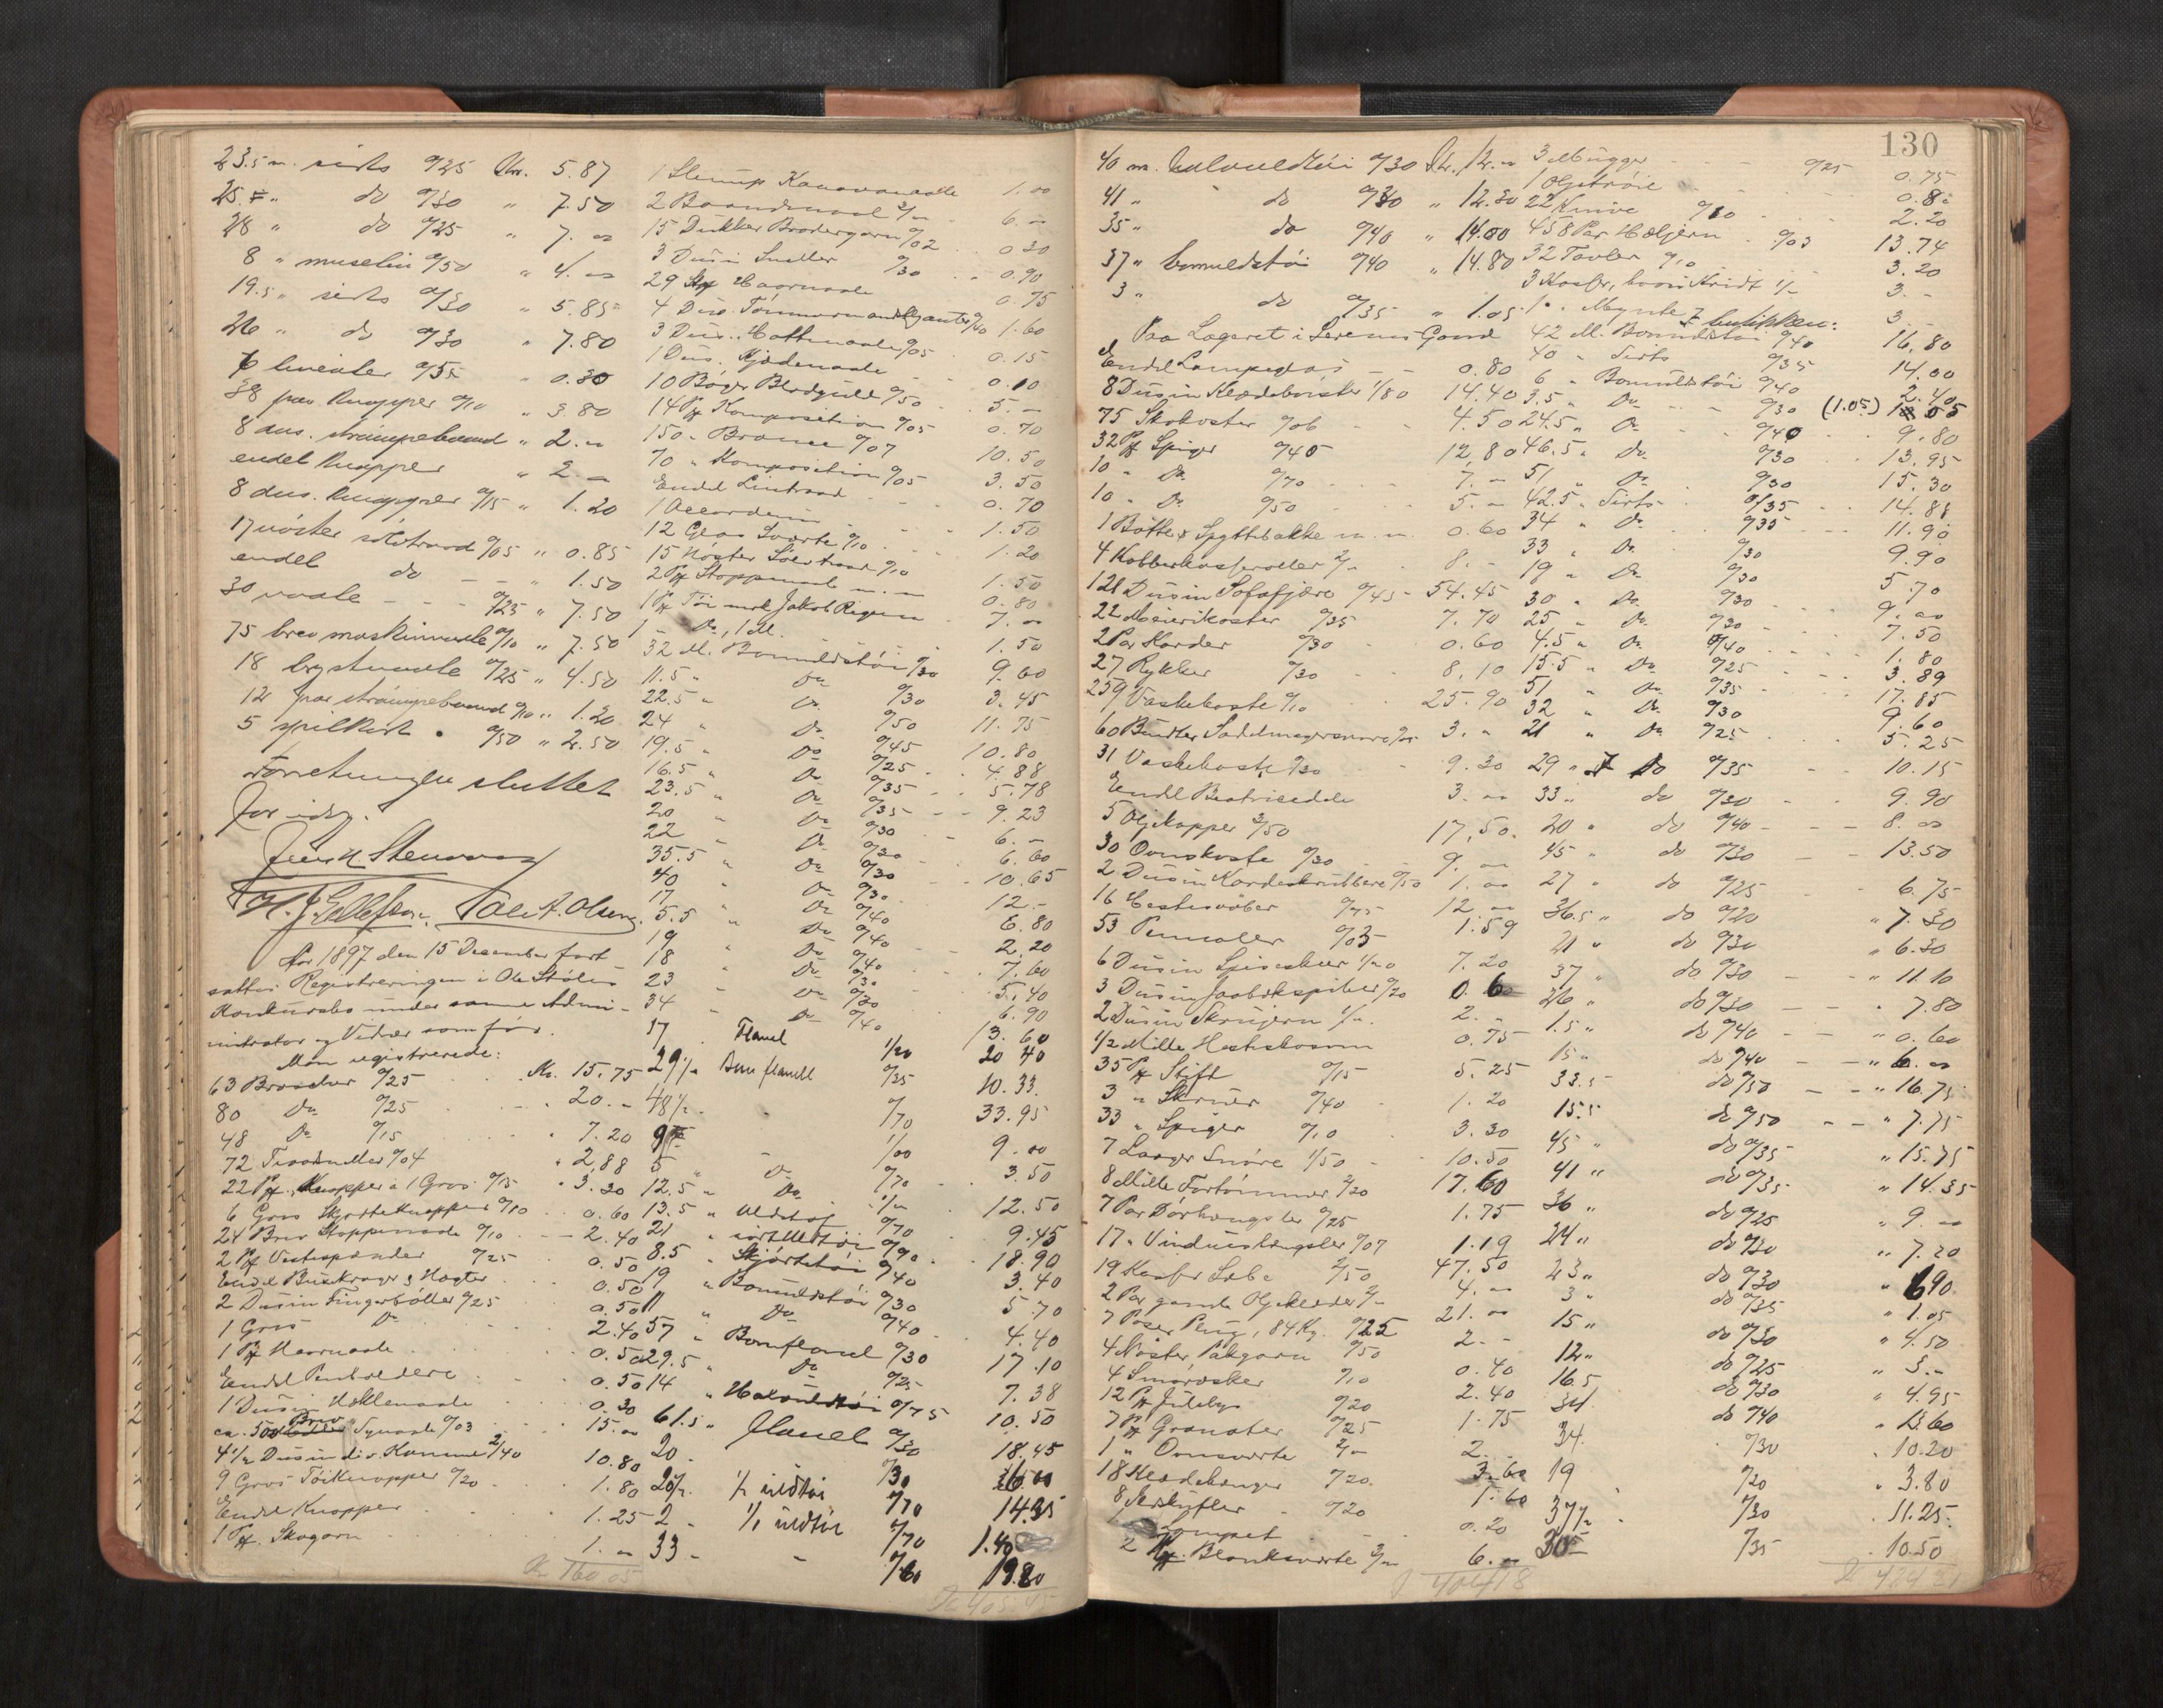 23.5 m. sirts 0/25 Kr. 5.87
25.5 " do 0/30 " 7.50
28 " do 0/25 " 7. "
8 " muselin 0/50 " 4. "
19.5 " sirts 0/30 " 5.85
26 " do 0/30 " 7.80
6 linealer 0/05 " 0.30
38 par knapper 0/10 " 3.80
8 dus. strømpebaand " 2. "
endel knapper " 2. "
8 dus. knapper 0/15 " 1.20
17 nøster sølvtraad 0/05 " 0.85
endel do - - " 1.50
30 naale - - - 0/25 " 7.50
75 brev maskinnaale 0/10 " 7.50
18 brystnaale 0/25 " 4.50
12 par strømpebaand 0/10 " 1.20
5 spilkort 0/50 " 2.50
Forretningen sluttet
for idag.
H. J. Ellefsen. Ole A. Olsen.
Aar 1897 den 15 December fort-
sattes Registreringen i Ole Støles
Konkursbo under samme Admi-
nistrator og Vidner som før.
Man registrerede:
63 Brosches 0/25 Kr. 15.75
80 Do 0/25 20. "
48 Do 0/15 7.20
72 Traadsneller 0/04 2.88
22 Pk Knapper a 1 Gros 0/15 3.30
6 Gros Skjorteknapper 0/10 0.60
24 Brev Stoppenaale 0/10 2.40
2 Pk Vestespænder 0/25 0.50
Endel Buxekroger & Hægter 0.50
2 Dusin Fingerbøller 0/25 0.50
1 Gros Do 2.40
1 Pk Haarnaale 0.50
Endel Penholdere 0.50
1 Dusin Heklenaale 0.30
ca. 500 Brev Synaale 0/03 15. "
4 1/2 Dusin div. Kamme 2/40 10.80
9 Gros Tøiknapper 0/20 1.80
Endel Knapper 1.25
1 Pk. Skogarn 1. "
Kr 160.05
1 Stump Kanavanaale 1.00
2 Baandnaal 3/" 6. "
15 Dukker Brodergarn 0/02 0.30
3 Dusin Sneller 0/30 0.90
29 Stk Haarnaale 0.75
4 Dus. 0/40 1.60
3 Dus. Hattenaale 0/05 0.15
1 Dus. Kjødenaale 0.10
10 Bøger Bladguld 0/50 5. -
14 Pk Komposition 0/05 0.70
150 " Bronce 0/07 10.50
70 " Komposition 0/05 3.50
Endel Lintraad 0.70
1 Accordeon 1.50
12 Glas Sværte 0/10 1.20
15 Nøster Sølvtraad 0/10 1.50
2 Pk Stoppenaal m. m 0.80
1 Pk Tøi mrk Jakob 7. "
1 Do, 1 M. 1.50
32 M. Bomuldstøi 0/30 9.60
11.5 " Do 0/30 3.45
22.5 " Do 0/50 11.75
24 " Do 0/45 10.80
19.5 " Do 0/25 4.88
16.5 " Do 0/35 5.78
23.5 " Do 0/35 9.23
20 " Do 0/30 6. -
22 " Do 0/30 6.60
35.5 " Do 0/30 10.65
40 " Do 0/30 12. -
17 " Do 0/40 6.80
5.5 " Do 0/40 2.20
19 " Do 0/40 7.60
18 " Do 0/30 5.40
23 " Do 0/30 6.90
34 " Do 0/40 13.60
17 Flanel 1/20 20 40
29 1/2 Bomflanell 0/35 10.33
48 1/2 - 0/70 33.95
9 - 1/00 9.00
5 " Do 0/70 3.50
12.5 " Do 1/" 12.50
13.5 " Uldtøj 0/70 9.45
21 " sort Uldtøi 0/90 18.90
8.5 " Skjørtetøi 0/40 3.40
19 " Bomuldstøi 0/30 5.70
11 " Do 0/40 4.40
57 " Bomflanel 0/30 17.10
29.5 " Do 0/25 7.38
14 " Halvuldtøi 0/75 10.50
61.5 " Flanel 0/30 18.45
20 - 0/30 6.00
20 1/2 1/1 uldtøi 0/70 14.35
2 - 1/1 uldtøi 0/70 1.40
33 - - 0/60 19.80
130
40 m. halvuldtøi 0/30 Kr. 12. "
41 " do 0/30 " 12.30
35 " do 0/40 " 14.00
37 " bomuldstøi 0/40 " 14.80
3 " do 0/35 " 1.05
Paa Lageret i Gaard
Endel Lampeglas 0.80
8 Dusin Klædebørster 1/80 14.40
75 Skokoster 0/06 4.50
32 Pk Spiger 0/40 12.80
10 " Do 0/70 7. "
10 " Do 0/50 5. "
1 Bøtte & Spyttebakke m. m. 0.60
4 Kobberkasseroller 2/" 8. -
121 Dusin Sofafjære 0/45 54.45
22 Meierikoster 0/35 7.70
2 Par Karder 0/30 0.60
27 Rykker 0/30 8.10
259 Vaskekoste 0/10 25.90
60 Bundter Sadelmagersnøre 0/05 3. "
31 Vaskekoste 0/30 9.30
Endel 3. "
5 Oljekapper 3/50 17.50
30 Ovnskoste 0/30 9. "
2 Dusin Kardeskrubbere 0/50 1. "
16 Hestesvøber 0/75 12. "
53 Pennaler 0/03 1.59
6 Dusin Spiseskeer 1/20 7.20
3 Dusin 0/20 0.6
2 Dusin Skruejern 1/" 2. -
1/2 Mille Hestskosøm 0.75
35 Pk Stift 0/15 5.25
3 " Skruer 0/40 1.20
33 " Spiger 0/10 3.30
7 Laager Snøre 1/50 10.50
8 Mille Fortømmer 2/20 17.60
7 Par Dørhængsler 0/25 1.75
17 " Vindueshængsler 0/07 1.19
19 Kasser Sæbe 2/50 47.50
2 Par gamle Oljeklæder 2/" 4. "
7 Poser , 84 Kg. 0/25 21. "
4 Nøster Pakgarn 0/50 2. -
4 Smøræsker 0/10 0.40
12 Pk Julelys 0/20 2.40
7 Pk Granater 0/25 1.75
1 " Ovnsværte 2/" 2. -
18 Klædehænger 0/20 3.60
8 0/20 1.60
1 Trompet 0.20
2 Pk. Blanksværte 3/" 6. "
3 Mugger 0/25 0.75
1 Oljetrøie 0.80
22 Knive 0/10 2.20
458 Par Hæljern 0/03 13.74
32 Tavler 0/10 3.20
3 Kasser, hvori Kridt 1/" 3. -
1 " Mynte i butikken: 3.
42 M. Bomuldstøi 0/40 16.80
40 " Sirts 0/35 14.00
6 " Bomuldstøi 0/40 2.40
3.5 " Do 0/30 (1.05) 1.05
24.5 " Do 0/40 9.80
46.5 " Do 0/30 13.95
51 " Do 0/30 15.30
42.5 " Sirts 0/35 14.88
34 " Do 0/35 11.90
33 " Do 0/30 9.90
19 " Do 0/30 5.70
30 " Do 0/30 9. "
25 " Do 0/30 7.50
4.5 " Do 0/40 1.80
15.5 " Do 0/25 3.89
51 " Do 0/35 17.85
32 " Do 0/30 9.60
21 " Do 0/25 5.25
29 " Do 0/35 10.15
33 " do 0/30 9.90
20 " do 0/40 8. "
45 " do 0/30 13.50
27 " do 0/25 6.75
36.5 " do 0/20 " 7.30
21 " do 0/30 " 6.30
37 " do 0/30 " 11.10
26 " do 0/30 " 7.80
1.5 " do 0/40 " 0.60
15 " do 0/40 " 6. "
33.5 do 0/50 " 16.75
15.5 do 0/50 " 7.75
45 " do 0/35 " 15.75
41 " do 0/35 " 14.35
36 " do 0/25 " 9. "
24 " do 0/30 " 7.20
23 " do 0/30 " 6.90
3 " do 0/35 " 1.05
15 " do 0/30 " 4.50
12 " do 0/25 " 3. -
16.5 do 0/30 " 4.95
34 do 0/40 " 13.60
34 0/30 " 10.20
19 0/20 " 3.80
37 1/2 0/30 " 11.25
30 0/35 10.50